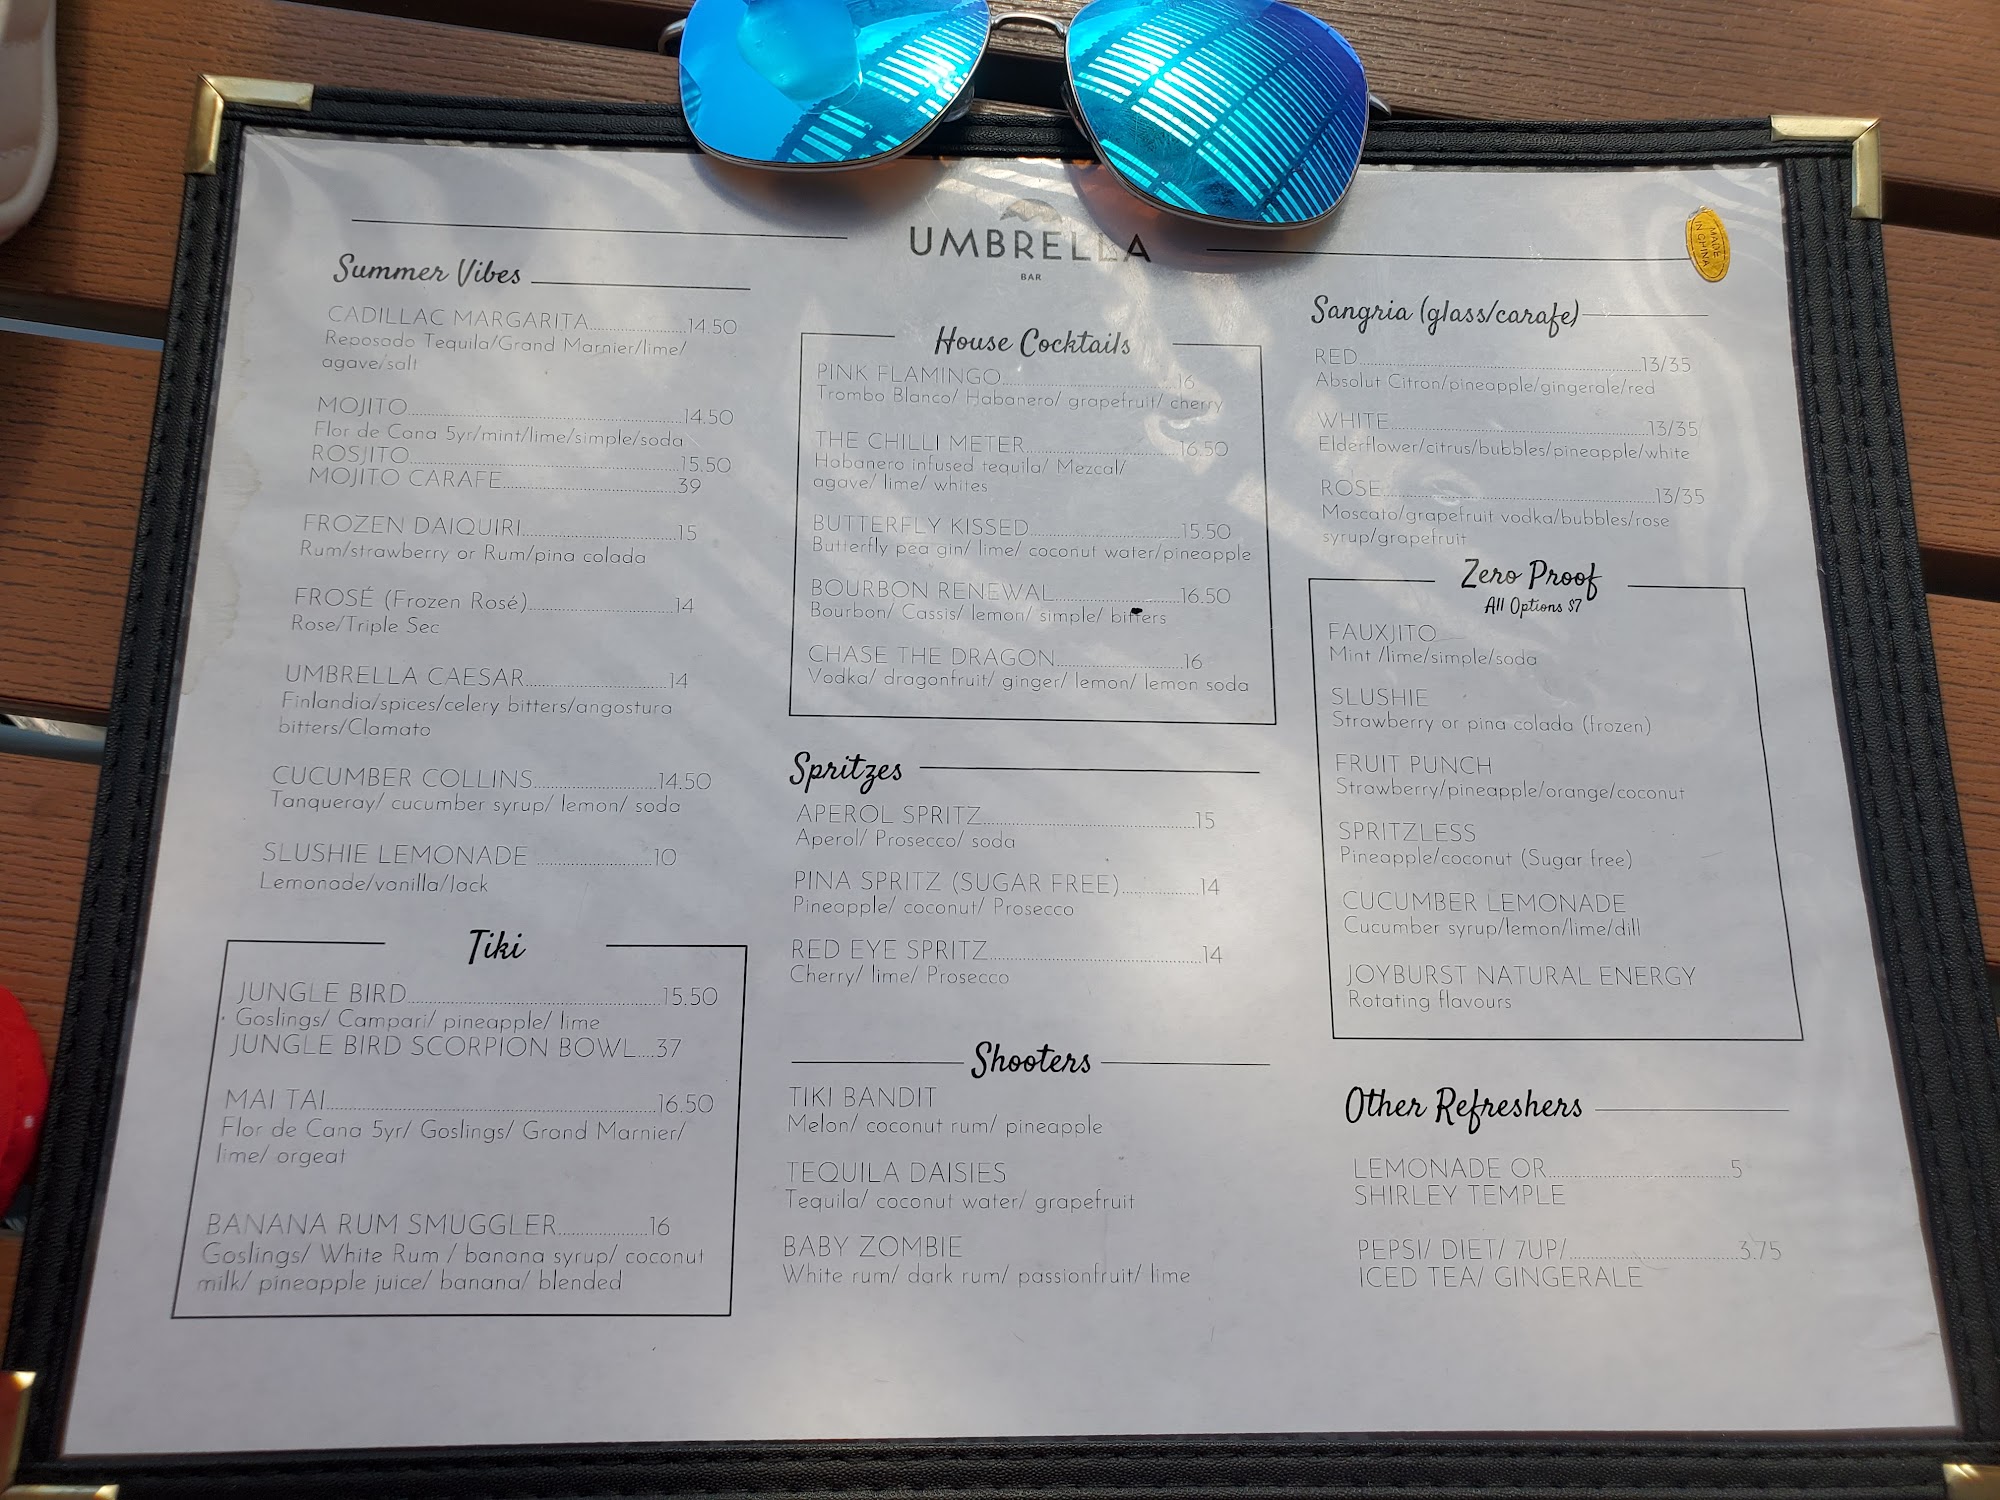 UMBRELLA
BAR
MADE
IN CHINA
Summer Vibes
CADILLAC MARGARITA......14.50
Reposado Tequila/Grand Marnier/lime/
agave/salt
MOJITO......14.50
Flor de Cana 5yr/mint/lime/simple/soda
ROSJITO......15.50
MOJITO CARAFE......39
FROZEN DAIQUIRI......15
Rum/strawberry or Rum/pina colada
FROSÉ (Frozen Rosé)......14
Rose/Triple Sec
UMBRELLA CAESAR......14
Finlandia/spices/celery bitters/angostura
bitters/Clamato
CUCUMBER COLLINS......14.50
Tanqueray/ cucumber syrup/ lemon/ soda
SLUSHIE LEMONADE ......10
Lemonade/vanilla/Jack
Tiki
JUNGLE BIRD......15.50
Goslings/ Campari/ pineapple/ lime
JUNGLE BIRD SCORPION BOWL....37
MAI TAI......16.50
Flor de Cana 5yr/ Goslings/ Grand Marnier/
lime/ orgeat
BANANA RUM SMUGGLER......16
Goslings/ White Rum / banana syrup/ coconut
milk/ pineapple juice/ banana/ blended
House Cocktails
PINK FLAMINGO......16
Trombo Blanco/ Habanero/ grapefruit/ cherry
THE CHILLI METER......16.50
Habanero infused tequila/ Mezcal/
agave/ lime/ whites
BUTTERFLY KISSED......15.50
Butterfly pea gin/ lime/ coconut water/pineapple
BOURBON RENEWAL......16.50
Bourbon/ Cassis/ lemon/ simple/ bitters
CHASE THE DRAGON......16
Vodka/ dragonfruit/ ginger/ lemon/ lemon soda
Spritzes
APEROL SPRITZ......15
Aperol/ Prosecco/ soda
PINA SPRITZ (SUGAR FREE)......14
Pineapple/ coconut/ Prosecco
RED EYE SPRITZ......14
Cherry/ lime/ Prosecco
Shooters
TIKI BANDIT
Melon/ coconut rum/ pineapple
TEQUILA DAISIES
Tequila/ coconut water/ grapefruit
BABY ZOMBIE
White rum/ dark rum/ passionfruit/ lime
Sangria (glass/carafe)
RED......13/35
Absolut Citron/pineapple/gingerale/red
WHITE......13/35
Elderflower/citrus/bubbles/pineapple/white
ROSE......13/35
Moscato/grapefruit vodka/bubbles/rose
syrup/grapefruit
Zero Proof
All Options $7
FAUXJITO
Mint /lime/simple/soda
SLUSHIE
Strawberry or pina colada (frozen)
FRUIT PUNCH
Strawberry/pineapple/orange/coconut
SPRITZLESS
Pineapple/coconut (Sugar free)
CUCUMBER LEMONADE
Cucumber syrup/lemon/lime/dill
JOYBURST NATURAL ENERGY
Rotating flavours
Other Refreshers
LEMONADE OR......5
SHIRLEY TEMPLE
PEPSI/ DIET/ 7UP/......3.75
ICED TEA/ GINGERALE